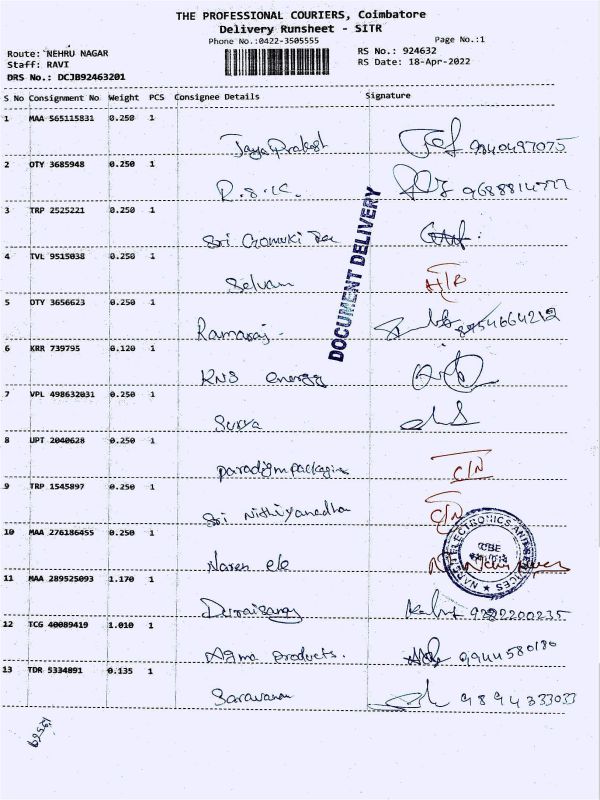 THE PROFESSIONAL COURIERS, Coimbatore
Delivery Runsheet - SITR
Phone No.:0422-3505555
Page No.:1
Route: NEHRU NAGAR
RS No.: 924632
Staff: RAVI
RS Date: 18-Apr-2022
DRS No.: DCJB92463201
S No Consignment No Weight PCS Consignee Details Signature
1 MAA 565115831 0.250 1
Jaya Prakash 9840497075
2 OTY 3685948 0.250 1
R.S.K.
3 TRP 2525221 0.250 1
Sri Gomuki
4 TVL 9515038 0.250 1
Selvam
5 OTY 3656623 0.250 1
Ramaraj 8754664212
6 KRR 739795 0.120 1
KNS energy
7 VPL 498632031 0.250 1
Surya
8 UPT 2040628 0.250 1
paradigm packaging C/N
9 TRP 1545897 0.250 1
Sri Nithiyanadha C/N
10 MAA 276186455 0.250 1
Naren ele
11 MAA 289525093 1.170 1
Duraisamy 9222200235
12 TCG 40089419 1.010 1
Agma products. 9944580180
13 TDR 5334891 0.135 1
Saravanan 9894333033
DOCUMENT DELIVERY
CBE